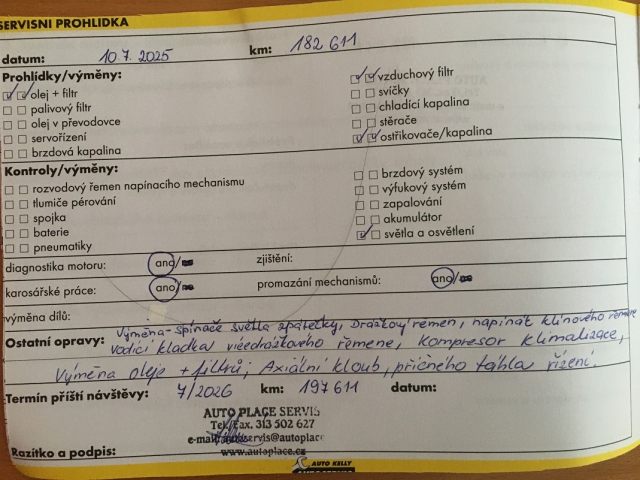 SERVISNÍ PROHLÍDKA
datum: 10.7. 2025 km: 182 611
Prohlídky/výměny:
olej + filtr
palivový filtr
olej v převodovce
servořízení
brzdová kapalina
vzduchový filtr
svíčky
chladící kapalina
stěrače
ostřikovače/kapalina
Kontroly/výměny:
rozvodový řemen napínacího mechanismu
tlumiče pérování
spojka
baterie
pneumatiky
brzdový systém
výfukový systém
zapalování
akumulátor
světla a osvětlení
diagnostika motoru: ano/ zjištění:
karosářské práce: ano/ promazání mechanismů: ano/
výměna dílů:
Ostatní opravy: Výměna - spínače světla zpátečky, Drážkový řemen, napínák klínového řemene
vodící kladka vícedrážkového řemene, kompresor klimatizace,
Výměna oleje + filtrů; Axiální kloub, příčného táhla řízení.
Termín příští návštěvy: 7/2026 km: 197 611 datum:
AUTO PLACE SERVIS
Tel/Fax. 313 502 627
www.autoplace.cz
Razítko a podpis:
AUTO KELLY